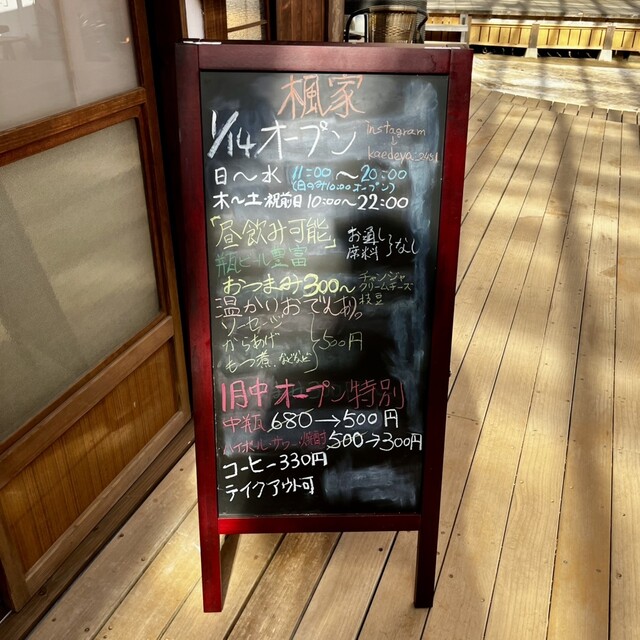 楓家
1/14 オープン
Instagram
kaedeya_2451
日〜水 11:00〜20:00
(日のみ10:00オープン)
木〜土祝前日 10:00〜22:00
「昼飲み可能」
お通し
席料 なし
瓶ビール豊富
おつまみ300〜
チャンジャ
クリームチーズ
枝豆
温かいおでんあり。
ソーセージ
からあげ
もつ煮、などなど
500円
1月中 オープン特別
中瓶 680→500円
ハイボール・サワー・焼酎 500→300円
コーヒー330円
テイクアウト可